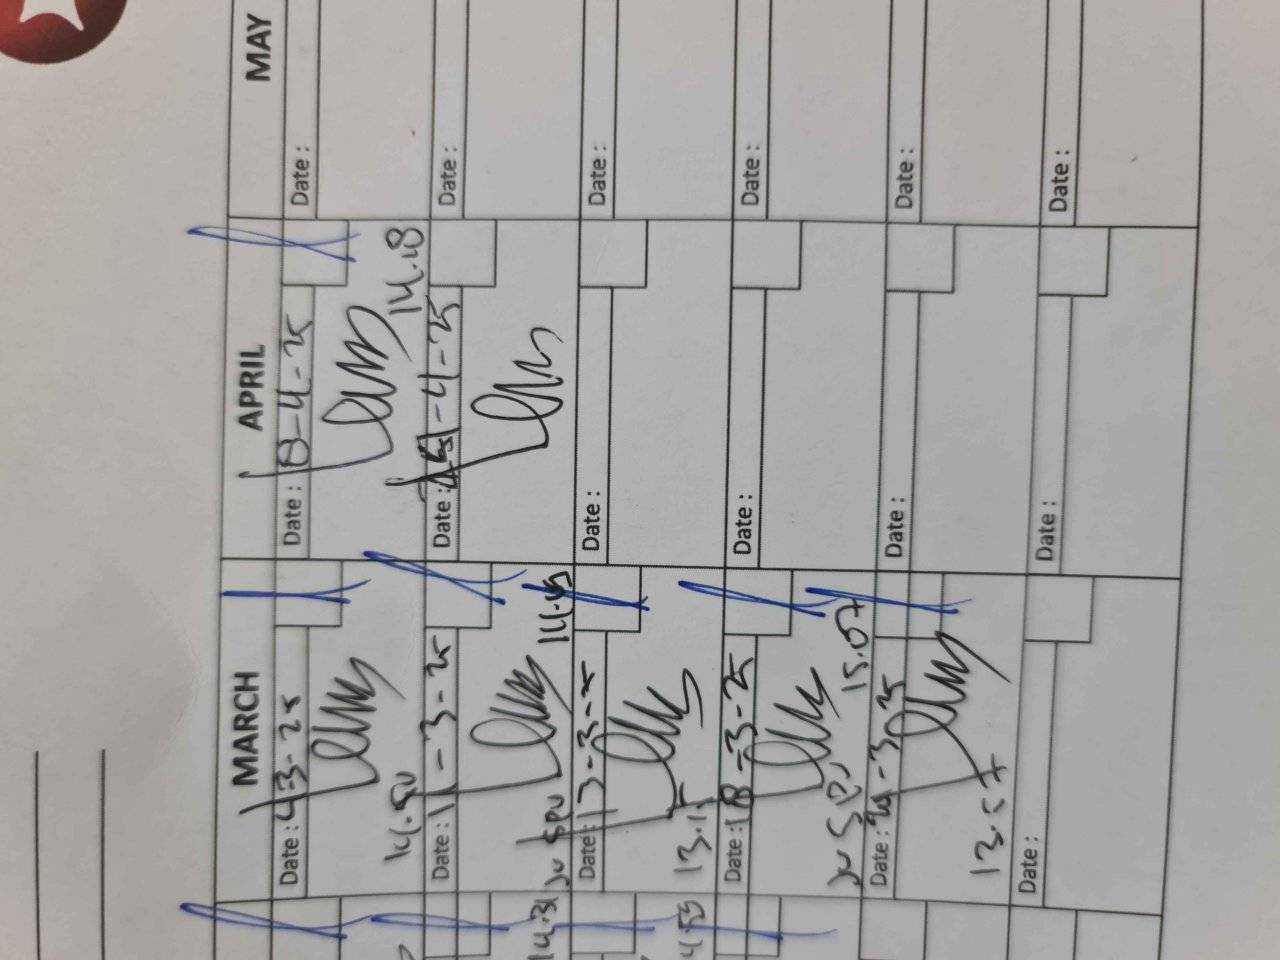 MARCH
Date : 4-3-25
14.50
Date : 11-3-25
14.45
Date : 13-3-25
13.1
Date : 18-3-25
15.07
Date :
13.57
Date :
APRIL
Date : 8-4-25
14.18
Date : -4-25
Date :
Date :
Date :
Date :
MAY
Date :
Date :
Date :
Date :
Date :
Date :
14.31